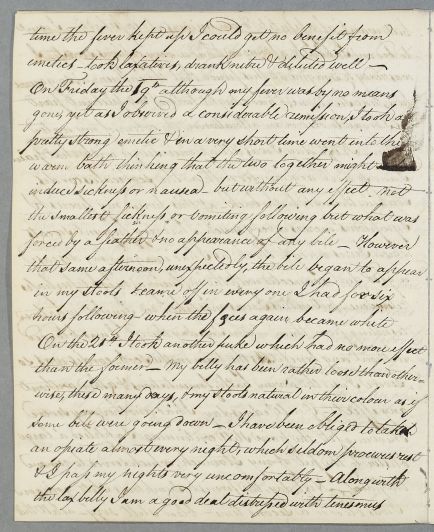 time the fever kept up I could get no benefit from
emetics - took laxatives, drank nitre & diluted well -
On Friday the 19th although my fever was by no means
gone, yet as I observed a considerable remission, I took a
pretty strong emetic & in a very short time went into the
warm bath thinking that the two together might
induce sickness or nausea - but without any effect. not
the smallest sickness or vomiting following but what was
forced by a feather & no appearance of any bile - However
that same afternoon, unexpectedly, the bile began to appear
in my stools & came off in every one I had for six
hours following - when the fæces again became white
On the 21st I took another puke which had no more effect
than the former - My belly has been rather loose than other-
wise, these many days, & my stools natural in their colour as if
some bile were going down - I have been obliged to take
an opiate almost every night, which seldom procures rest
& I pass my nights very uncomfortably - Along with
the lax belly I am a good deal distressed with tenesmus